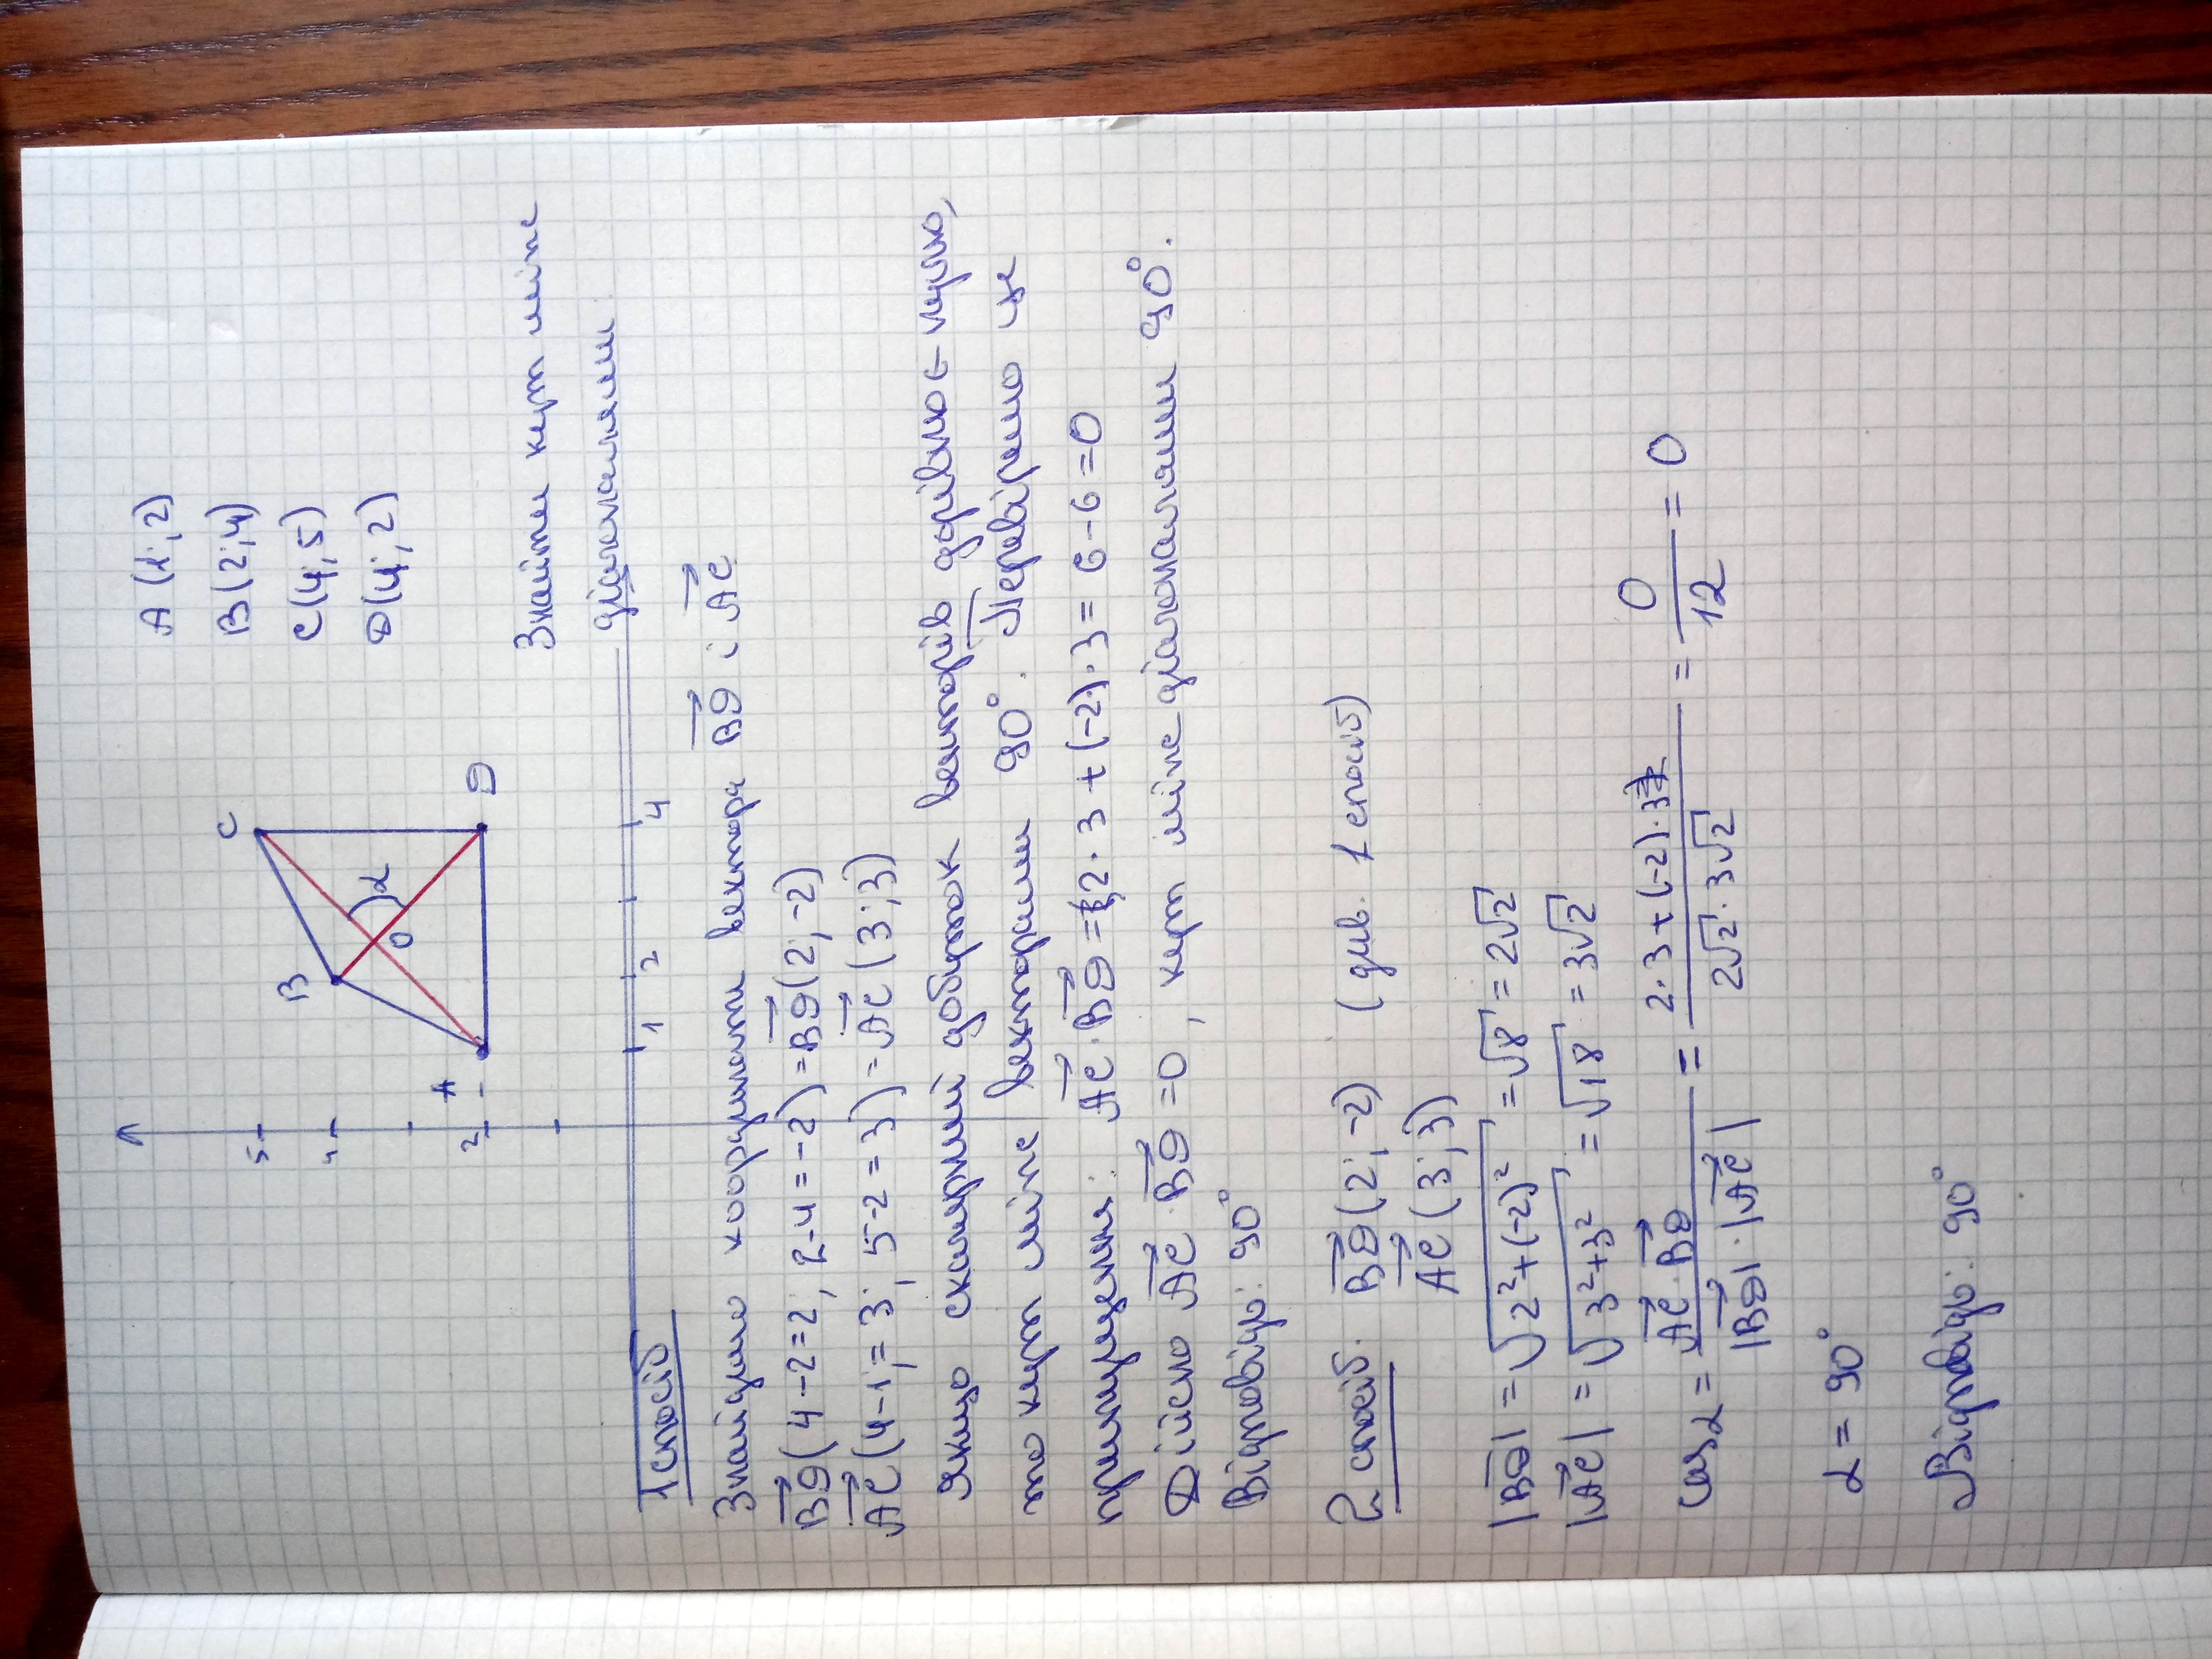 A (1; 2)
B (2; 4)
C (4; 5)
D (4; 2)
Знайти кут між
діагоналями
5
4
2
A
B
C
D
O
α
1
2
4
1 спосіб
Знайдемо координати вектора BD і AC
BD (4-2=2; 2-4=-2) = BD (2; -2)
AC (4-1; = 3; 5-2=3) = AC (3; 3)
Якщо скалярний добуток векторів дорівнює нулю,
то кут між векторами 90°. Перевіримо це
припущення: AC · BD = 2 · 3 + (-2) · 3 = 6 - 6 = 0
Дійсно AC · BD = 0, кут між діагоналями 90°.
Відповідь: 90°
2 спосіб. BD (2; -2) (див. 1 спосіб)
AC (3; 3)
|BD| = √2² + (-2)² = √8 = 2√2
|AC| = √3² + 3² = √18 = 3√2
cos α = AC · BD / |BD| · |AC| = 2 · 3 + (-2) · 3 / 2√2 · 3√2 = 0 / 12 = 0
α = 90°
Відповідь: 90°